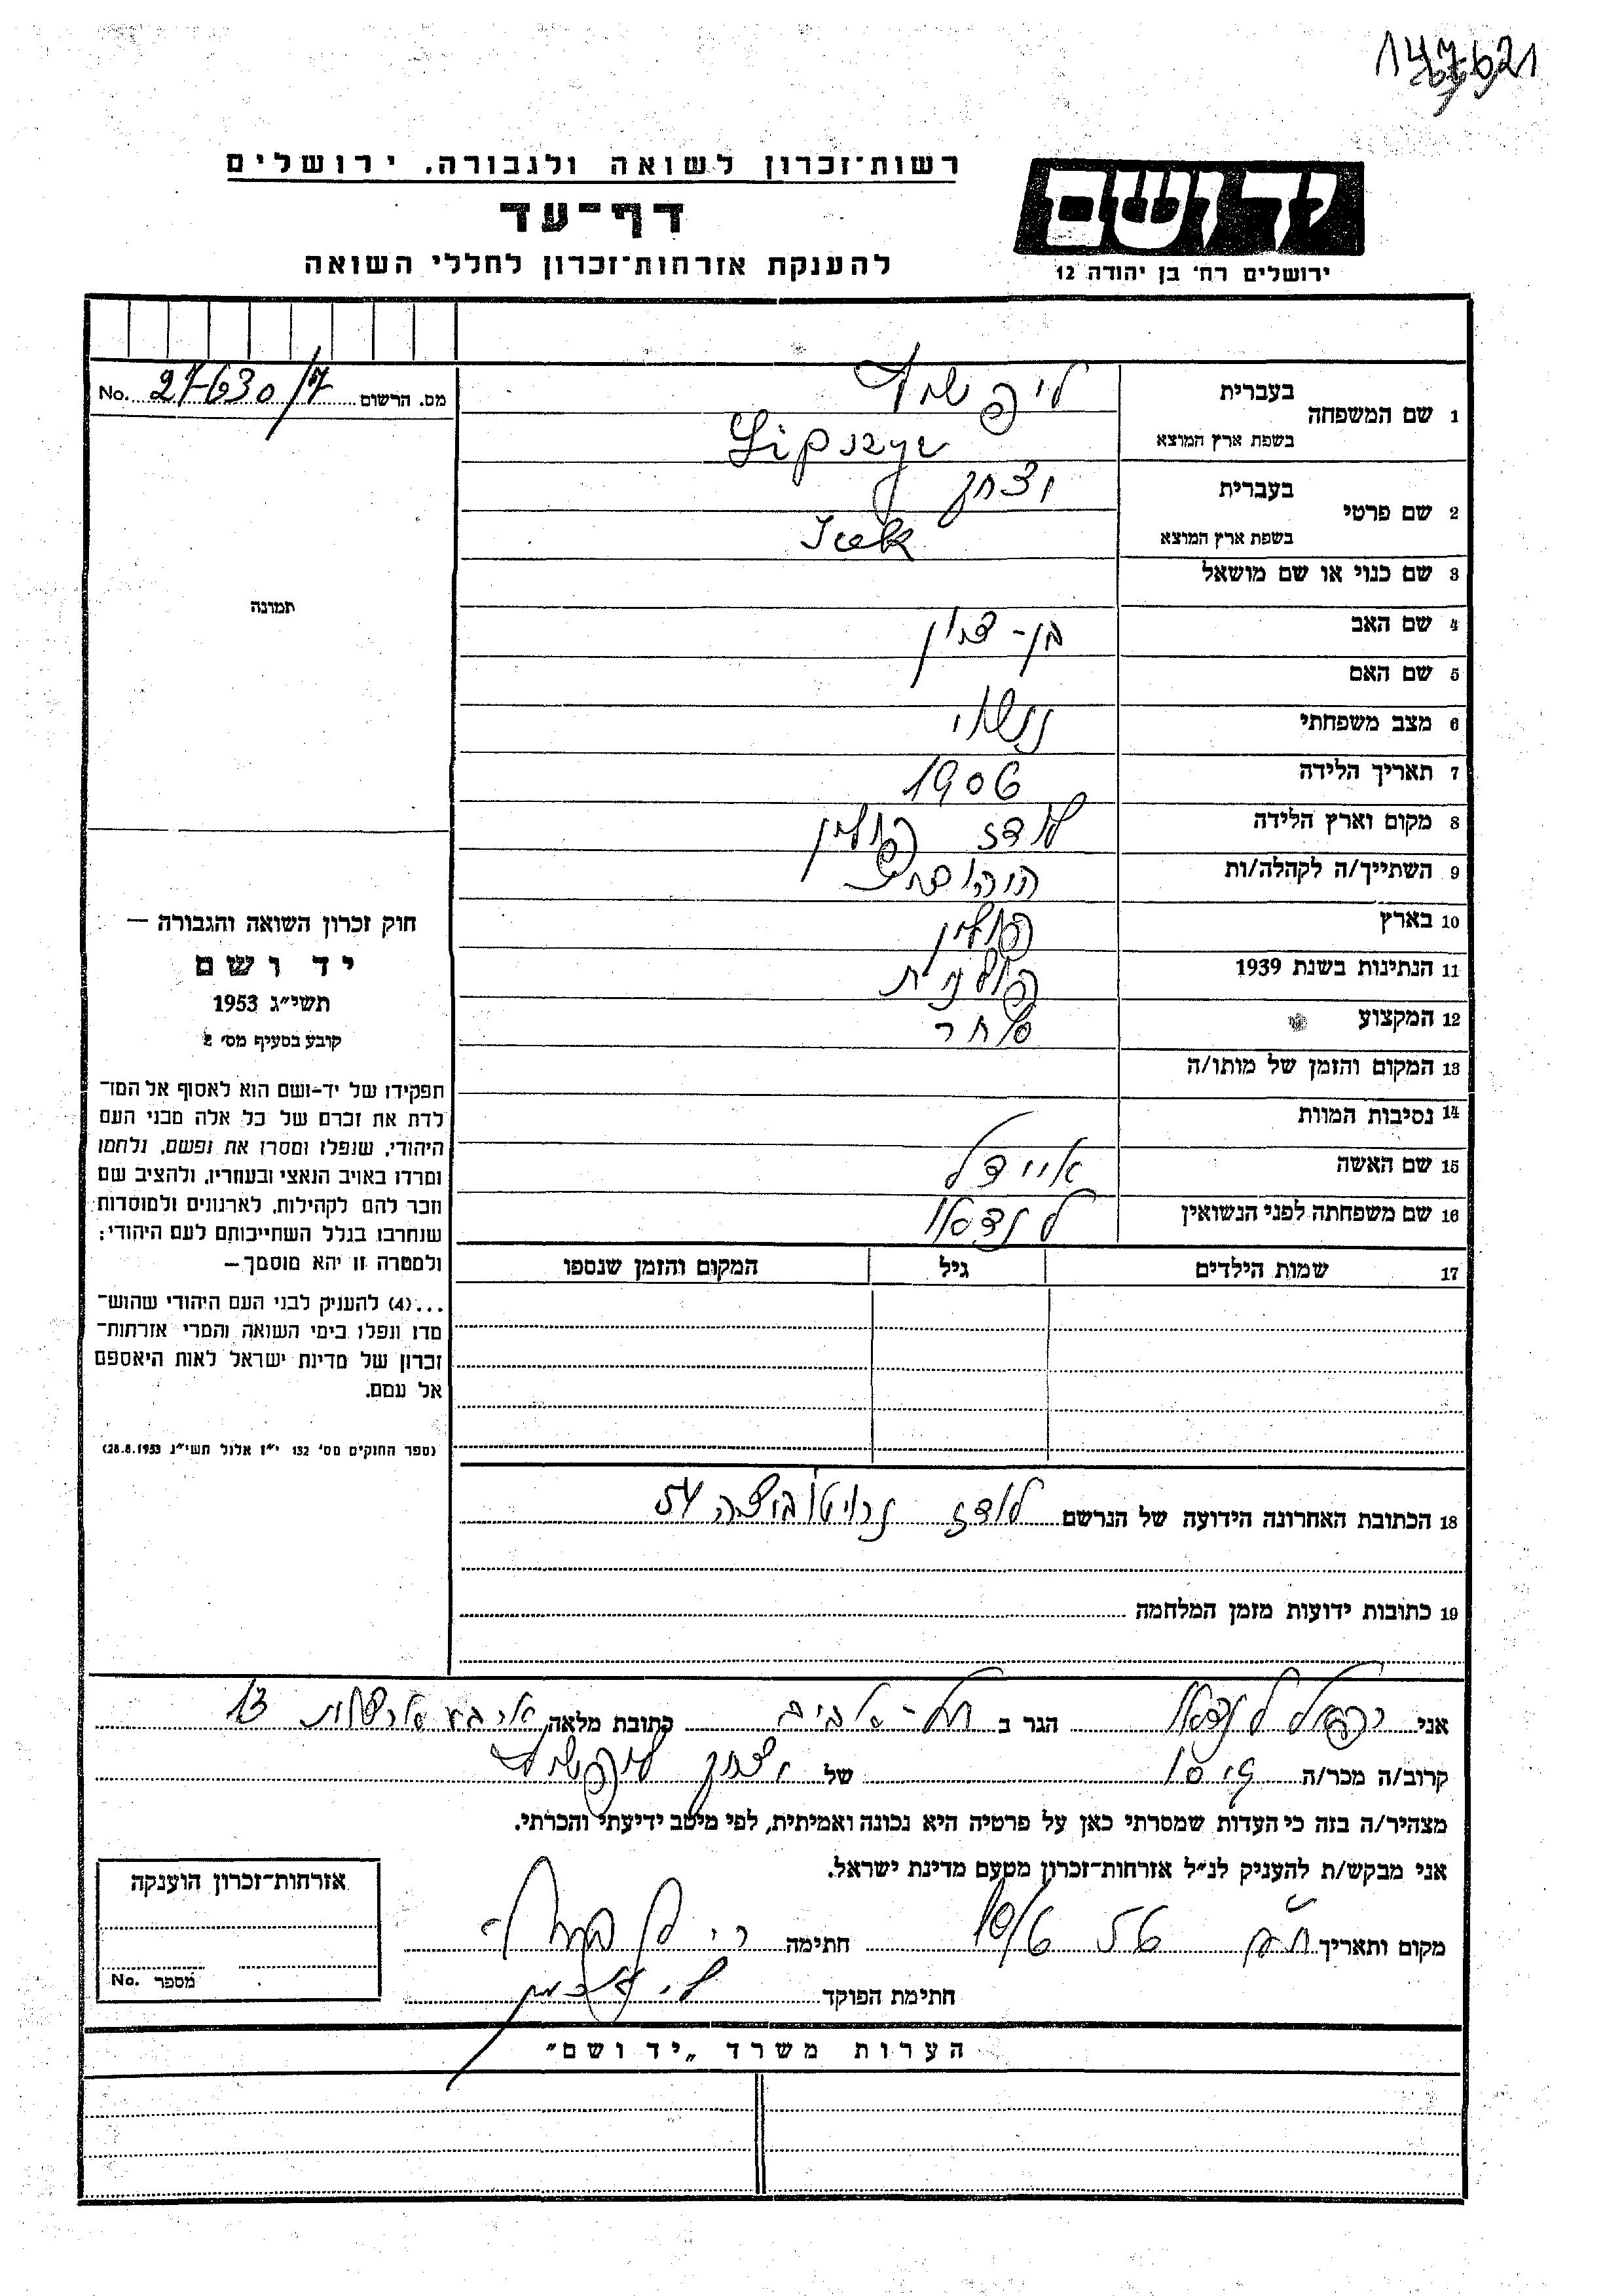 רשות־זכרון לשואה ולגבורה, ירושלים
דף־עד
להענקת אזרחות־זכרון לחללי השואה
יד ושם
ירושלים רח' בן יהודה 12
מס. הרשום 27630/17 No.
1 שם המשפחה
בעברית ליפשיץ
בשפת ארץ המוצא Lipszyc
2 שם פרטי
בעברית יצחק
בשפת ארץ המוצא Icek
3 שם כנוי או שם מושאל
4 שם האב בן-ציון
5 שם האם
6 מצב משפחתי נשוי
7 תאריך הלידה 1906
8 מקום וארץ הלידה לודז פולין
9 השתייך/ה לקהלה/ות היהודית
10 בארץ פולין
11 הנתינות בשנת 1939 פולנית
12 המקצוע סוחר
13 המקום והזמן של מותו/ה
14 נסיבות המוות
15 שם האשה איידל
16 שם משפחתה לפני הנשואין לנדאו
17 שמות הילדים גיל המקום והזמן שנספו
18 הכתובת האחרונה הידועה של הנרשם לודז נרוטוביצה 54
19 כתובות ידועות מזמן המלחמה
תמונה
חוק זכרון השואה והגבורה —
יד ושם
תשי״ג 1953
קובע בסעיף מס' 2
תפקידו של יד-ושם הוא לאסוף אל המו־
לדת את זכרם של כל אלה מבני העם
היהודי, שנפלו ומסרו את נפשם, נלחמו
ומרדו באויב הנאצי ובעוזריו, ולהציב שם
וזכר להם לקהילות, לארגונים ולמוסדות
שנחרבו בגלל השתייכותם לעם היהודי;
ולמטרה זו יהא מוסמך —
...(4) להעניק לבני העם היהודי שהוש־
מדו ונפלו בימי השואה והמרי אזרחות־
זכרון של מדינת ישראל לאות היאספם
אל עמם.
(ספר החוקים מס' 132 י״ז אלול תשי״ג 28.8.1953)
אני ישראל לנדאו הגר ב תל-אביב כתובת מלאה 13
קרוב/ה מכר/ה גיסו של יצחק ליפשיץ
מצהיר/ה בזה כי העדות שמסרתי כאן על פרטיה היא נכונה ואמיתית, לפי מיטב ידיעתי והכרתי.
אני מבקש/ת להעניק לנ״ל אזרחות־זכרון מטעם מדינת ישראל.
מקום ותאריך 10/6 56 חתימה
חתימת הפוקד
אזרחות־זכרון הוענקה
מספר No.
הערות משרד „יד ושם״